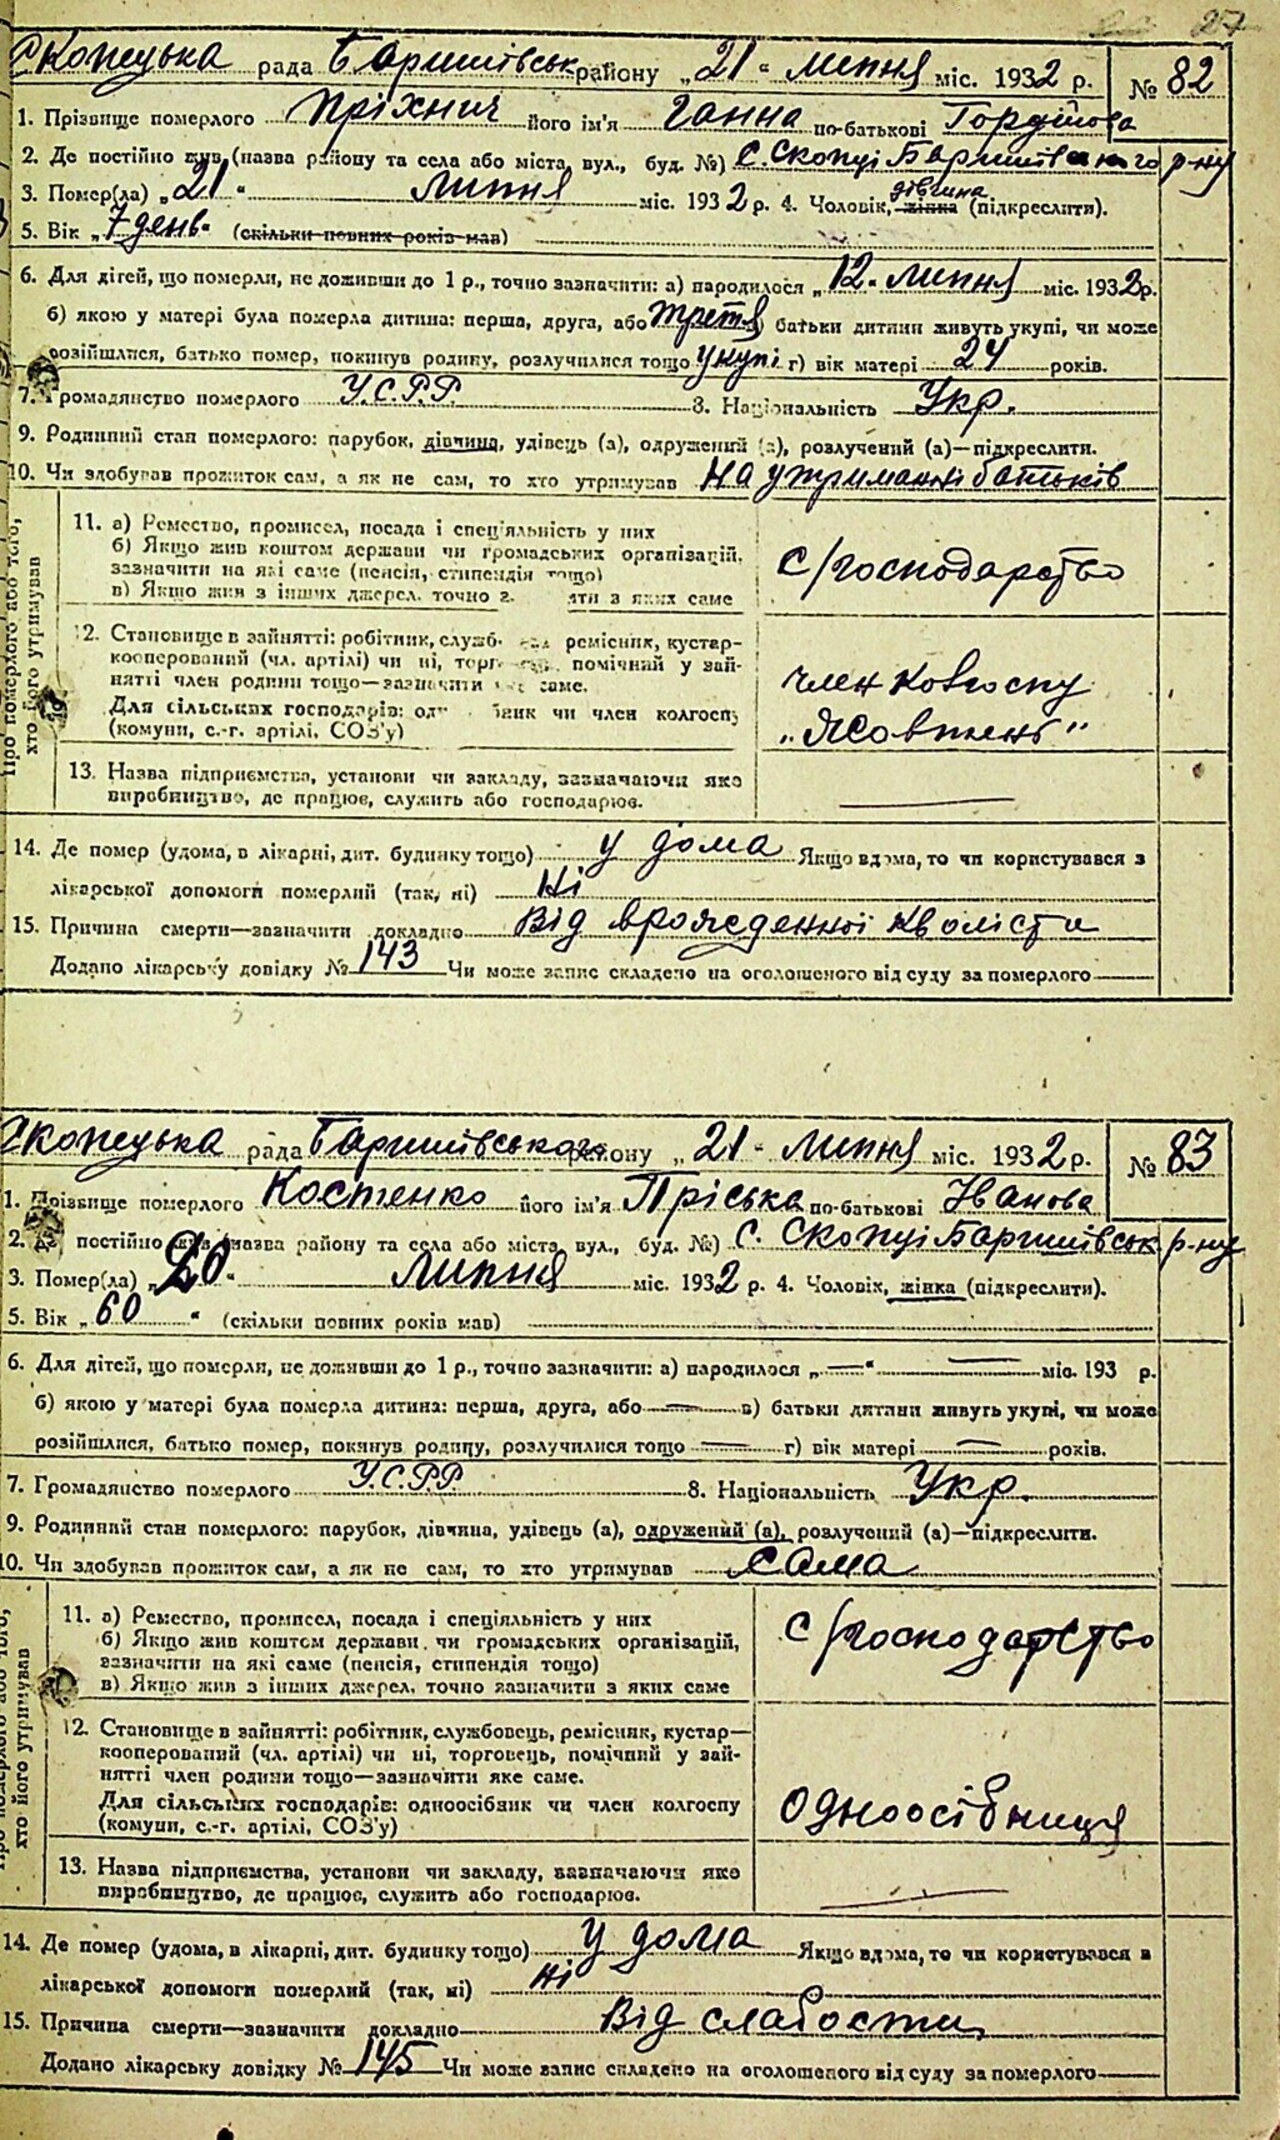 27
Скопецька рада Баришівськ району „21" липня міс. 1932 р. № 82
1. Прізвище померлого Пріхнич його ім'я Ганна по-батькові Гордійова
2. Де постійно жив (назва району та села або міста, вул., буд. №) с. Скопці Баришівського р-ну
3. Помер(ла) „21" липня міс. 1932 р. 4. Чоловік, жінка дівчина (підкреслити).
5. Вік „7 день" (скільки повних років мав)
6. Для дітей, що померли, не доживши до 1 р., точно зазначити: а) народилося „12" липня міс. 1932 р.
б) якою у матері була померла дитина: перша, друга, або третя) батьки дитини живуть укупі, чи може
розійшлися, батько помер, покинув родину, розлучилися тощо укупі г) вік матері 24 років.
7. Громадянство померлого У.С.Р.Р. 8. Національність Укр.
9. Родинний стан померлого: парубок, дівчина, удівець (а), одружений (а), розлучений (а)—підкреслити.
10. Чи здобував прожиток сам, а як не сам, то хто утримував на утриманні батьків
Про померлого або того,
хто його утримував
11. а) Ремество, промисел, посада і спеціяльність у них
б) Якщо жив коштом держави чи громадських організацій,
зазначити на які саме (пенсія, стипендія тощо)
в) Якщо жив з інших джерел, точно з яти з яких саме
с/господарство
12. Становище в зайнятті: робітник, служб ремісник, кустар-
кооперований (чл. артілі) чи ні, торг помічний у зай-
нятті член родини тощо—зазначити саме.
Для сільських господарів: од бник чи член колгоспу
(комуни, с.-г. артілі, СОЗ'у)
член ковгоспу
„Жовтень"
13. Назва підприємства, установи чи закладу, зазначаючи яке
виробництво, де працює, служить або господарює.
14. Де помер (удома, в лікарні, дит. будинку тощо) у дома Якщо вдома, то чи користувався з
лікарської допомоги померлий (так, ні) Ні
15. Причина смерти—зазначити докладно Від врожденної кволісти
Додано лікарську довідку № 143 Чи може запис складено на оголошеного від суду за померлого
Скопецька рада Баришівського району „21" липня міс. 1932 р. № 83
1. Прізвище померлого Костенко його ім'я Пріська по-батькові Іванова
2. Де постійно жив (назва району та села або міста, вул., буд. №) с. Скопці Баришівськ р-ну
3. Помер(ла) „20" липня міс. 1932 р. 4. Чоловік, жінка (підкреслити).
5. Вік „60" (скільки повних років мав)
6. Для дітей, що померли, не доживши до 1 р., точно зазначити: а) народилося „—" — міс. 193 р.
б) якою у матері була померла дитина: перша, друга, або — в) батьки дитини живуть укупі, чи може
розійшлися, батько помер, покинув родину, розлучилися тощо — г) вік матері — років.
7. Громадянство померлого У.С.Р.Р. 8. Національність Укр.
9. Родинний стан померлого: парубок, дівчина, удівець (а), одружений (а), розлучений (а)—підкреслити.
10. Чи здобував прожиток сам, а як не сам, то хто утримував сама
Про померлого або того,
хто його утримував
11. а) Ремество, промисел, посада і спеціяльність у них
б) Якщо жив коштом держави чи громадських організацій,
зазначити на які саме (пенсія, стипендія тощо)
в) Якщо жив з інших джерел, точно зазначити з яких саме
с/господарство
12. Становище в зайнятті: робітник, службовець, ремісник, кустар—
кооперований (чл. артілі) чи ні, торговець, помічний у зай-
нятті член родини тощо—зазначити яке саме.
Для сільських господарів: одноосібник чи член колгоспу
(комуни, с.-г. артілі, СОЗ'у)
одноосібниця
13. Назва підприємства, установи чи закладу, зазначаючи яке
виробництво, де працює, служить або господарює.
14. Де помер (удома, в лікарні, дит. будинку тощо) у дома Якщо вдома, то чи користувався з
лікарської допомоги померлий (так, ні) ні
15. Причина смерти—зазначити докладно Від слабости
Додано лікарську довідку № 145 Чи може запис складено на оголошеного від суду за померлого